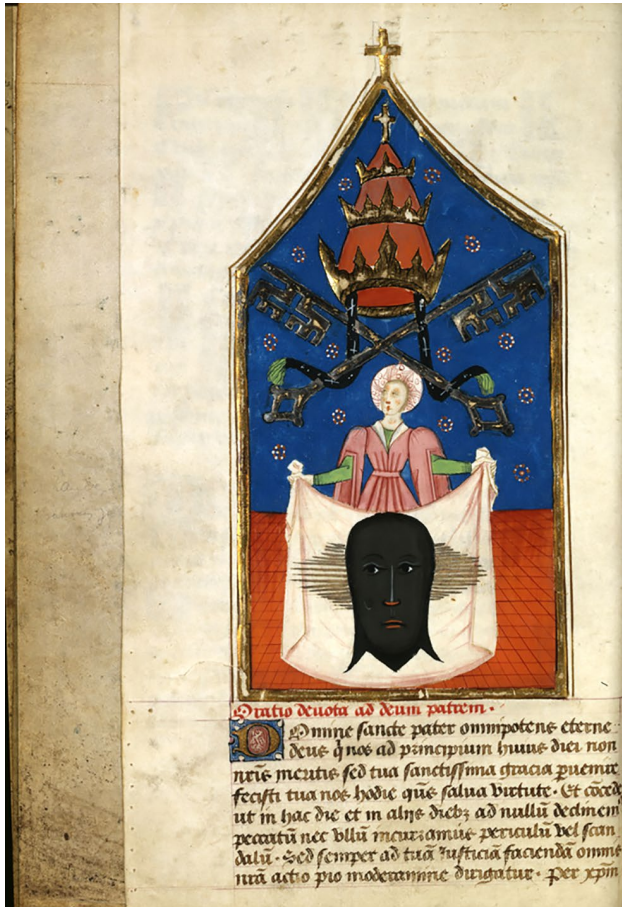 Oratio deuota ad deum patrem ·
Domine sancte pater omnipotens eterne
deus q̇ nos ad principium huius diei non
nr̄is meritis sed tua sanctissima gracia ꝑuenire
fecisti tua nos hodie qūs salua virtute · Et cōcede
ut in hac die et in alijs diebꝫ ad nullū declinem
peccatū nec vllū incurramus periculū vel scan
dalū · Sed semper ad tuā Iusticiā faciendā omnis
nr̄a actio pio moderamine dirigatur · Per xp̄m